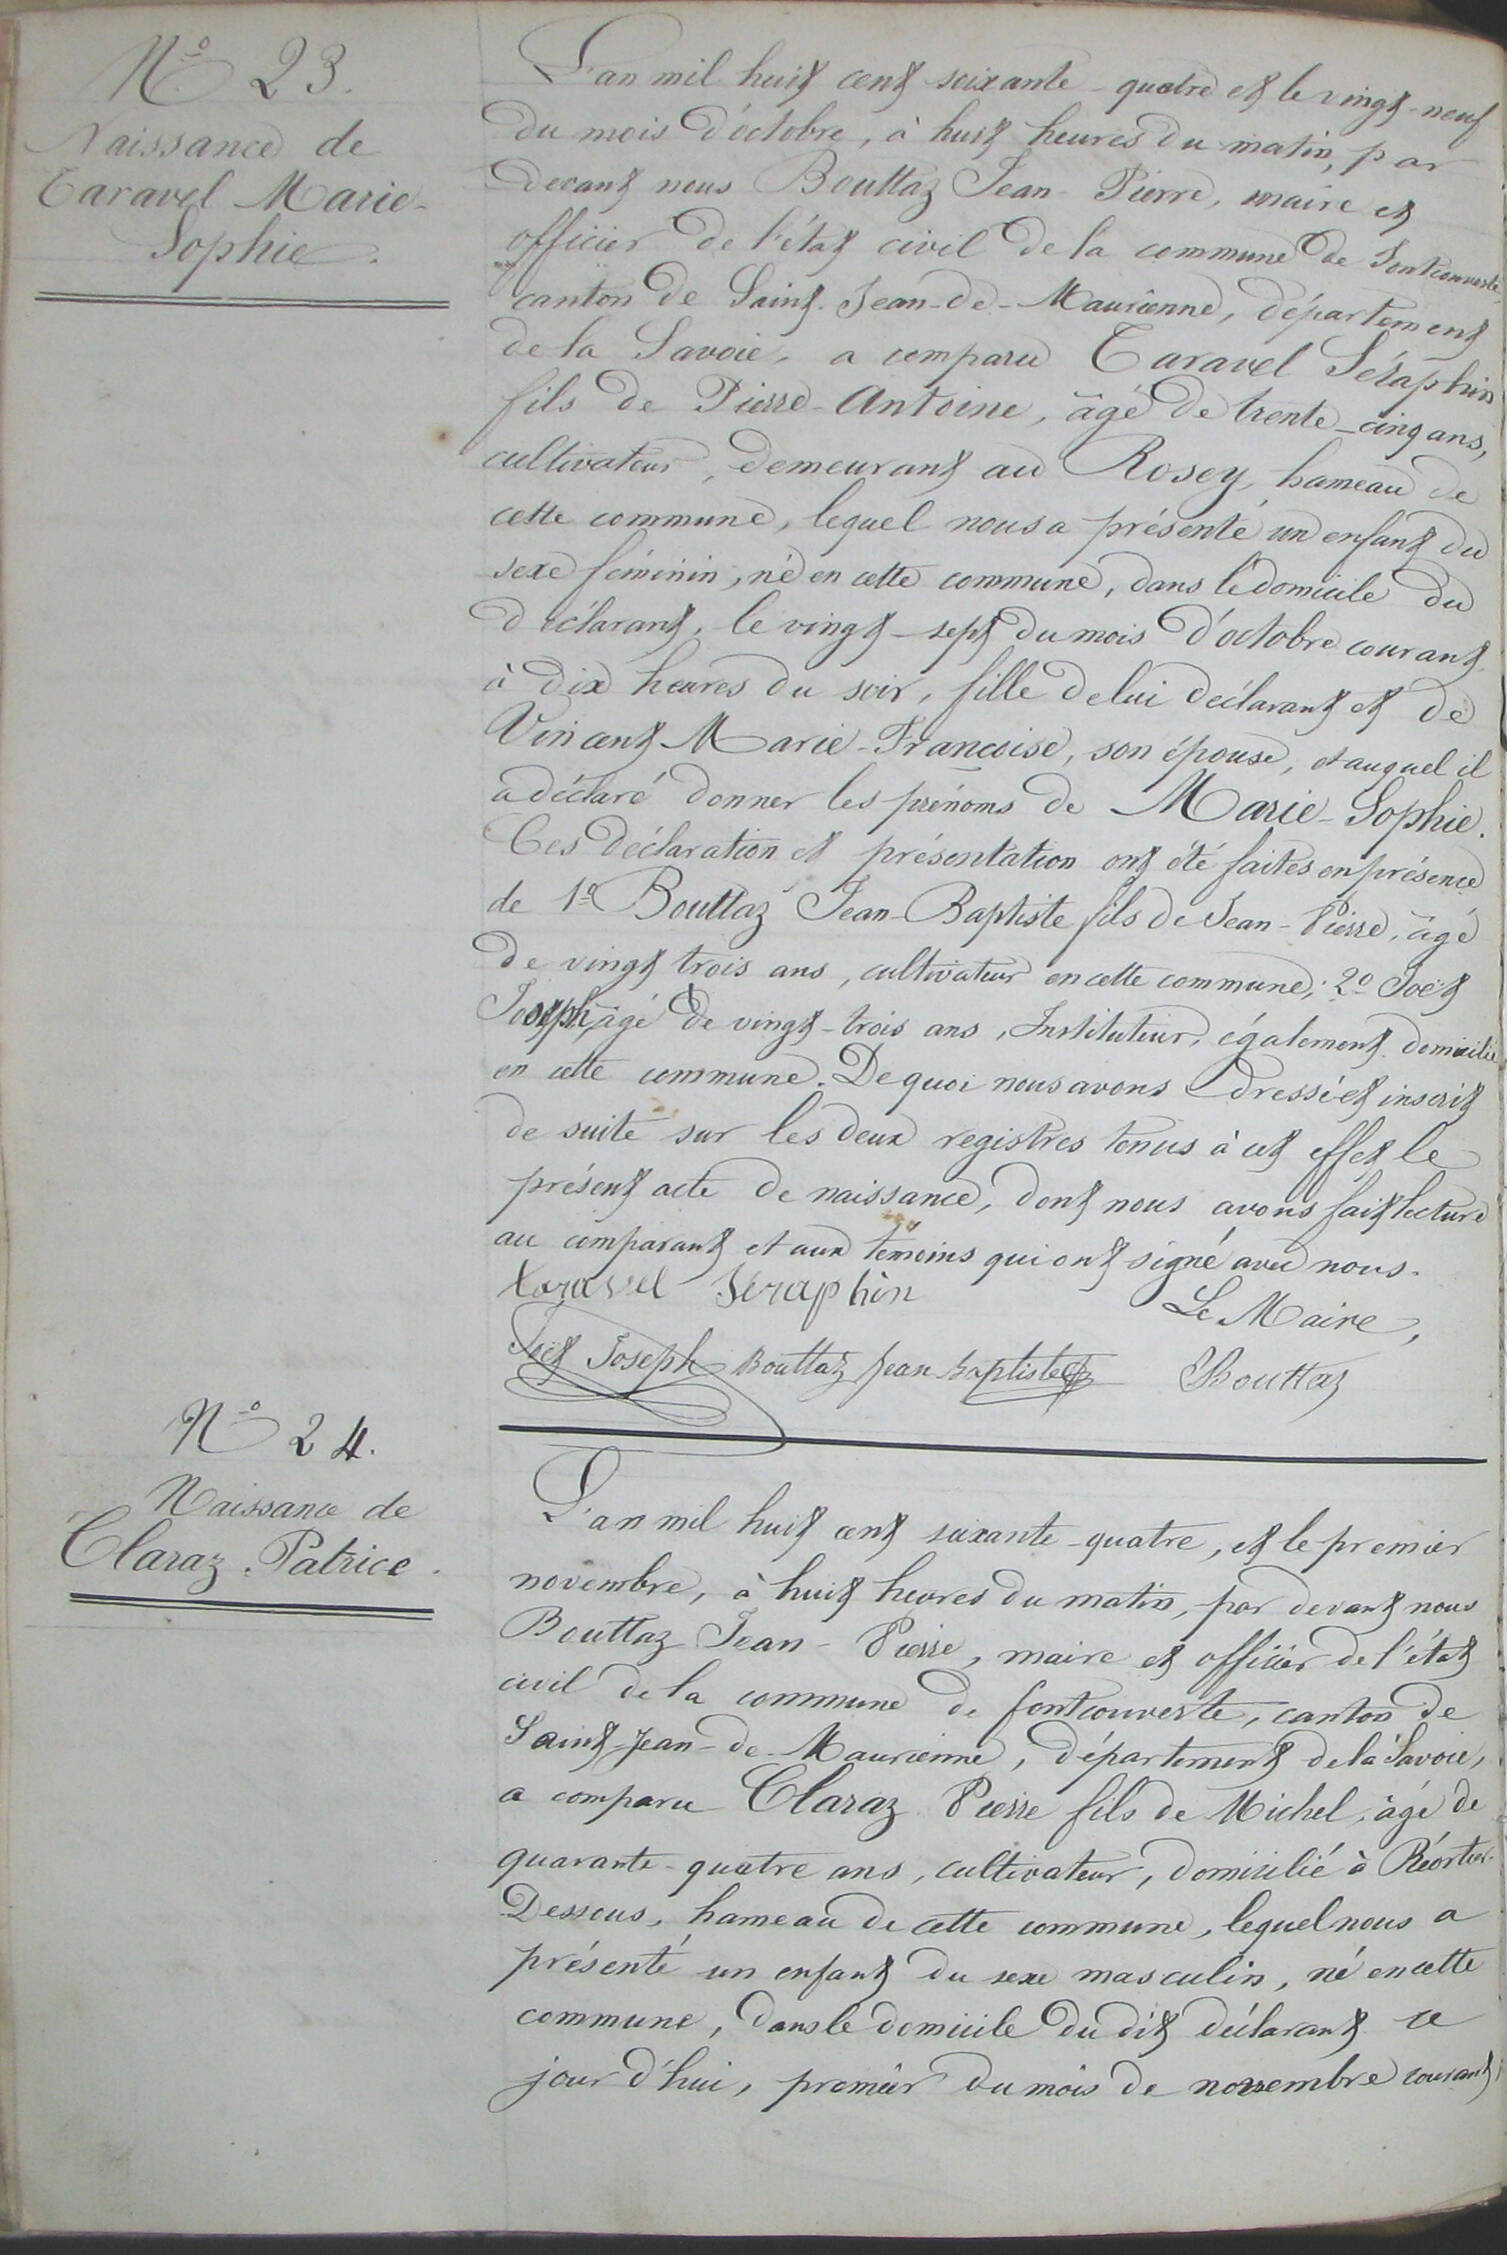 N.o 23.
Naissance de
Taravel Marie-
Sophie.
L'an mil huit cent soixante-quatre et le vingt-neuf
du mois d'octobre, à huit heures du matin, par
devant nous Bouttaz Jean-Pierre, maire et
officier de l'état civil de la commune de Fontcouverte,
canton de Saint-Jean-de-Maurienne, département
de la Savoie, a comparu Taravel Séraphin
fils de Pierre-Antoine, âgé de trente-cinq ans,
cultivateur, demeurant au Rosey, hameau de
cette commune, lequel nous a présenté un enfant du
sexe féminin, né en cette commune, dans le domicile du
déclarant, le vingt-sept du mois d'octobre courant,
à dix heures du soir, fille de lui déclarant et de
Vincent Marie-Françoise, son épouse, et auquel il
a déclaré donner les prénoms de Marie-Sophie.
Ces déclaration et présentation ont été faites en présence
de 1o Bouttaz Jean-Baptiste fils de Jean-Pierre, âgé
de vingt trois ans, cultivateur en cette commune; 2o Joët
Joseph, âgé de vingt-trois ans, Instituteur, également domicilié
en cette commune. De quoi nous avons dressé et inscrit
de suite sur les deux registres tenus à cet effet le
présent acte de naissance, dont nous avons fait lecture
au comparant et aux témoins qui ont signé avec nous.
taravel Seraphin
Le Maire,
Joët Joseph Bouttaz Jean Baptiste Bouttaz
N.o 24.
Naissance de
Claraz Patrice.
L'an mil huit cent soixante-quatre, et le premier
novembre, à huit heures du matin, par devant nous
Bouttaz Jean-Pierre, maire et officier de l'état
civil de la commune de fontcouverte, canton de
Saint-Jean-de-Maurienne, département de la Savoie,
a comparu Claraz Pierre fils de Michel, âgé de
quarante-quatre ans, cultivateur, domicilié à Réortier-
Dessous, hameau de cette commune, lequel nous a
présenté un enfant du sexe masculin, né en cette
commune, dans le domicile du dit déclarant ce
jour d'hui, premier du mois de novembre courant,